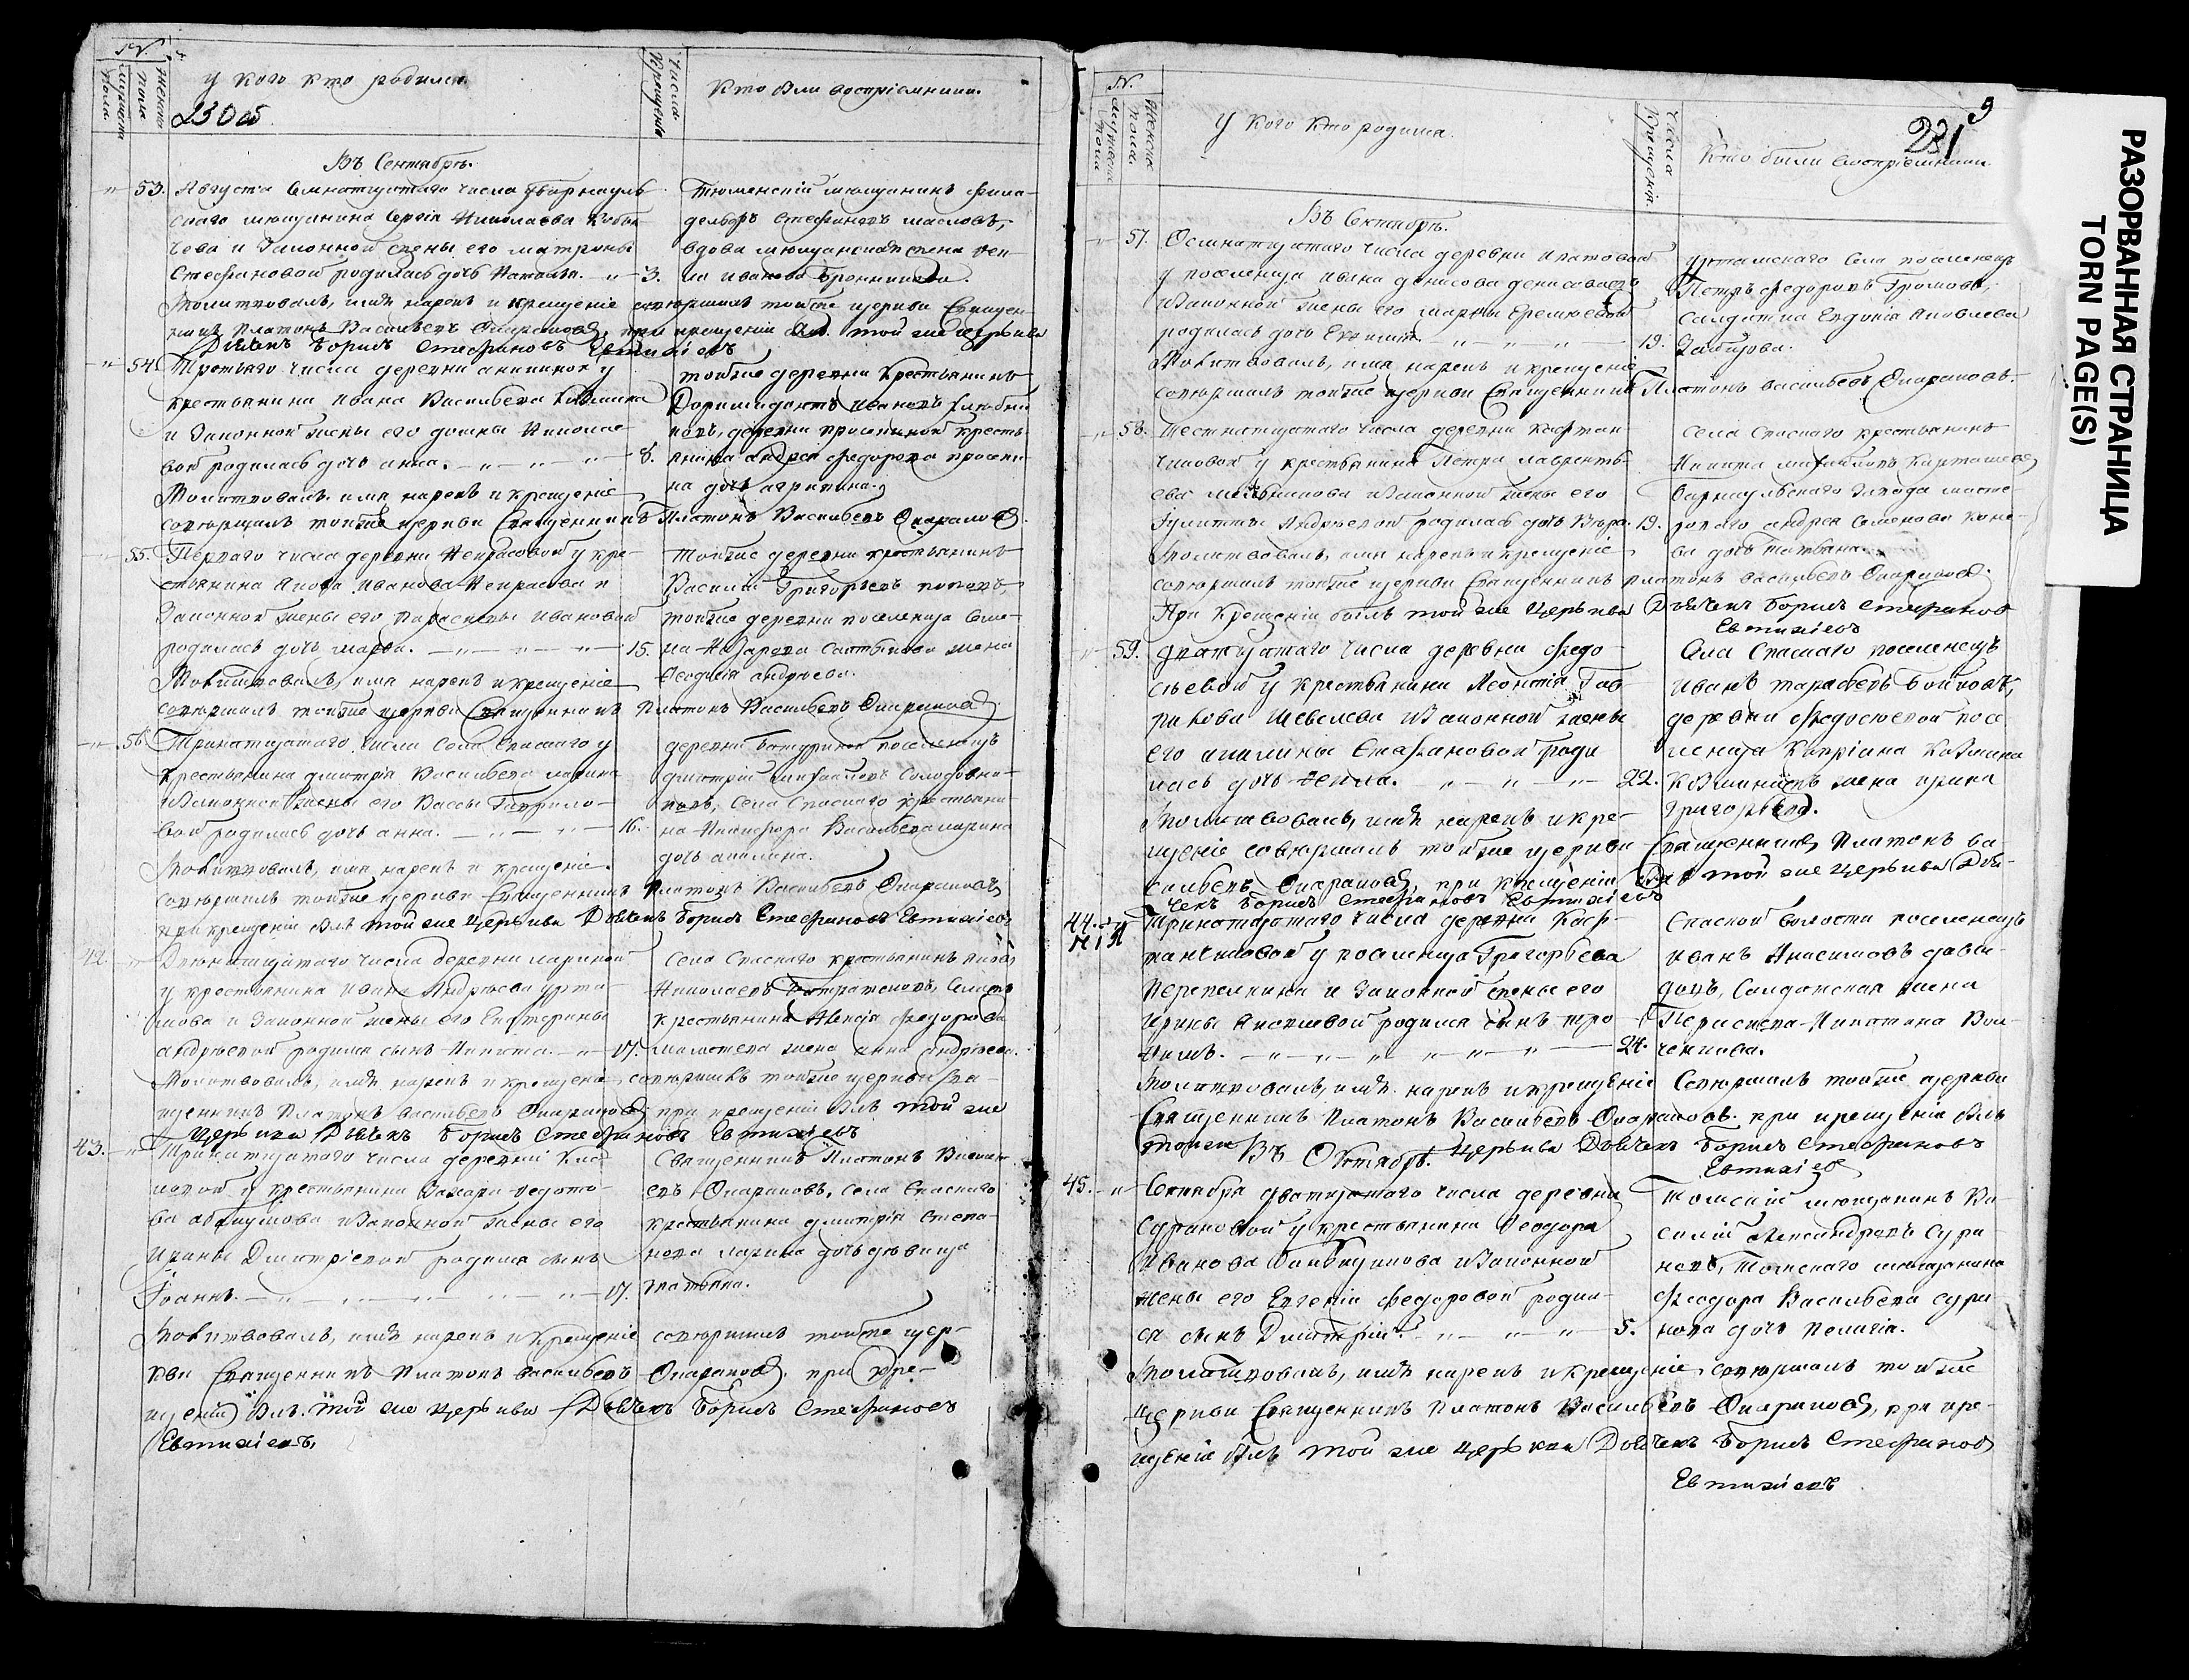 №.
Женска пола
Мужеска пола
у кого кто родился.
Числа Крещенія
Кто были восприемники.
230об
Въ Сентябрѣ.
53. Августа числа
скаго мещанина Сергія Николаева
чева и Законной жены его Матроны
Стефановой родилась дочь Наталія. 3.
Тюменскій мещанинъ Фила-
дельфъ Стефановъ Масловъ,
вдова мещанская жена
Иванова
Молитвовалъ, имя нарекъ и крещеніе совершилъ тойже церкви Священ-
никъ Платонъ Васильевъ при крещеніи былъ той же церькви
Дьячекъ Борисъ Стефановъ Евтихіевъ
54. Третьяго числа деревни Аникиной у
крестьянина Ивана Васильева
и Законной жены его Домны Николае-
вой родилась дочь Анна. 8.
тойже деревни крестьянинъ
Доримедонтъ Ивановъ
новъ, деревни Просекиной кресть-
янина Андрея Федорова Просеки-
на дочь Агрипина.
Молитвовалъ имя нарекъ и крещеніе
совершилъ тойже церкви Священникъ Платонъ Васильевъ
55. Перваго числа деревни Некрасовой у кре-
стьянина Якова Иванова Некрасова и
Законной жены его Параскевы Ивановой
родилась дочь Марфа. 15.
тойже деревни крестьянинъ
Василій Григорьевъ Поповъ,
тойже деревни поселенца Семе-
на Назарова жена
Феодосія Андреева.
Молитвовалъ, имя нарекъ и крещеніе
совершилъ тойже церкви Священникъ Платонъ Васильевъ
56. Тринатцатаго числа Села Спаскаго у
крестьянина Дмитрія Васильева Ларина
и Законной жены его Вассы Гаврило-
вой родилась дочь Анна. 16.
деревни Батуриной поселенецъ
Дмитрій Михайловъ Солодовни-
ковъ, Села Спаскаго крестьяни-
на Никифора Васильева Ларина
дочь Акилина.
Молитвовалъ, имя нарекъ и крещеніе
совершилъ тойже церкви Священникъ Платонъ Васильевъ
при крещеніи былъ той же церькви Дьячекъ Борисъ Стефановъ Евтихіевъ
42. Двенатцатаго числа деревни Лариной
у крестьянина Ивана Андреева Урта-
мова и Законной жены его Екатерины
Андреевой родился сынъ Никита. 17.
Села Спаскаго крестьянинъ Яковъ
Николаевъ
крестьянина Алексія Федорова
жена Анна Андреева.
Молитвовалъ, имя нарекъ и крещеніе совершилъ тойже церкви Свя-
щенникъ Платонъ Васильевъ при крещеніи былъ той же
церькви Дьячекъ Борисъ Стефановъ Евтихіевъ
43. Тринатцатаго числа деревни
у крестьянина Захара Федото-
ва Абакумова и Законной жены его
Ирины Дмитріевой родился сынъ
Іоаннъ. 17.
Священникъ Платонъ Василь-
евъ села Спаскаго
крестьянина Дмитрія Степа-
нова Ларина дочь девица
Татьяна.
Молитвовалъ, имя нарекъ и крещеніе совершилъ тойже цер-
кви Священникъ Платонъ Васильевъ при кре-
щеніи былъ той же церькви Дьячекъ Борисъ Стефановъ
Евтихіевъ.
№.
Женска пола.
Мужеска пола
у кого кто родился.
Числа Крещенія.
Кто были восприемники.
231
Въ Сентябрѣ.
57. Осмнатцатаго числа деревни
у поселенца Ивана Денисова Денисова
и Законной жены его Марѳы Еремеевой
родилась дочь 19.
Уртамскаго села поселенецъ
Петръ Федоровъ Громовъ,
Салдатка Евдокія Яковлева
Молитвовалъ, имя нарекъ и крещеніе
совершилъ тойже церкви Священникъ Платонъ Васильевъ
58. Шестнатцатаго числа деревни Кафтан-
чиковой у крестьянина Петра Лавренть-
ева Мельникова и Законной жены его
Улиты Андреевой родилась дочь Вѣра. 19.
Села Спаскаго крестьянинъ
Никита Михайловъ Карташевъ,
барнаульскаго завода масте-
роваго Андрея Семенова Коне-
ва дочь Татьяна.
Молитвовалъ, имя нарекъ и крещеніе
совершилъ тойже церкви Священникъ Платонъ Васильевъ
При крещеніи былъ той же церькви Дьячекъ Борисъ Стефановъ
Евтихіевъ
59. Дватцатаго числа деревни Федо-
сѣевой у крестьянина Леонтія Гав-
рилова Шевелева и Законной жены
его Акилины Стефановой роди-
лась дочь Фекла. 22.
Села Спаскаго поселенецъ
Иванъ Тарасьевъ Бойковъ,
деревни Федосѣевой посе-
ленца Кипріана Козмина
жена Ирина
Григорьева.
Молитвовалъ, имя нарекъ и кре-
щеніе совершилъ тойже церкви Священникъ Платонъ Ва-
сильевъ при крещеніи былъ той же церькви Дья-
чекъ Борисъ Стефановъ Евтихіевъ
44. Тринатцатаго числа деревни Каф-
танчиковой у поселенца Григорьева
Перепелкина и Законной жены его
Ирины родился сынъ Тро-
фимъ. 24.
Спаской волости поселенецъ
Иванъ Анисимовъ Давы-
довъ, Салдатская жена
Параскева Никитина Вол-
ченкова.
Молитвовалъ, имя нарекъ и крещеніе совершилъ тойже церкви
Священникъ Платонъ Васильевъ при крещеніи былъ
тойже церькви Дьячекъ Борисъ Стефановъ
Евтихіевъ
Въ Октябрѣ.
45. Сентября дватцатаго числа деревни
Сурановой у крестьянина Феодора
Иванова и Законной
жены его Евгеніи Федоровой родил-
ся сынъ Димитрій. 5.
Томскій мещанинъ Ва-
силій Александровъ Сура-
новъ, Томскаго мещанина
Феодора Васильева Сура-
нова дочь Пелагія.
Молитвовалъ, имя нарекъ и крещеніе совершилъ тойже
церкви Священникъ Платонъ Васильевъ при кре-
щеніи былъ той же церькви Дьячекъ Борисъ Стефановъ
Евтихіевъ
РАЗОРВАННАЯ СТРАНИЦА
TORN PAGE(S)